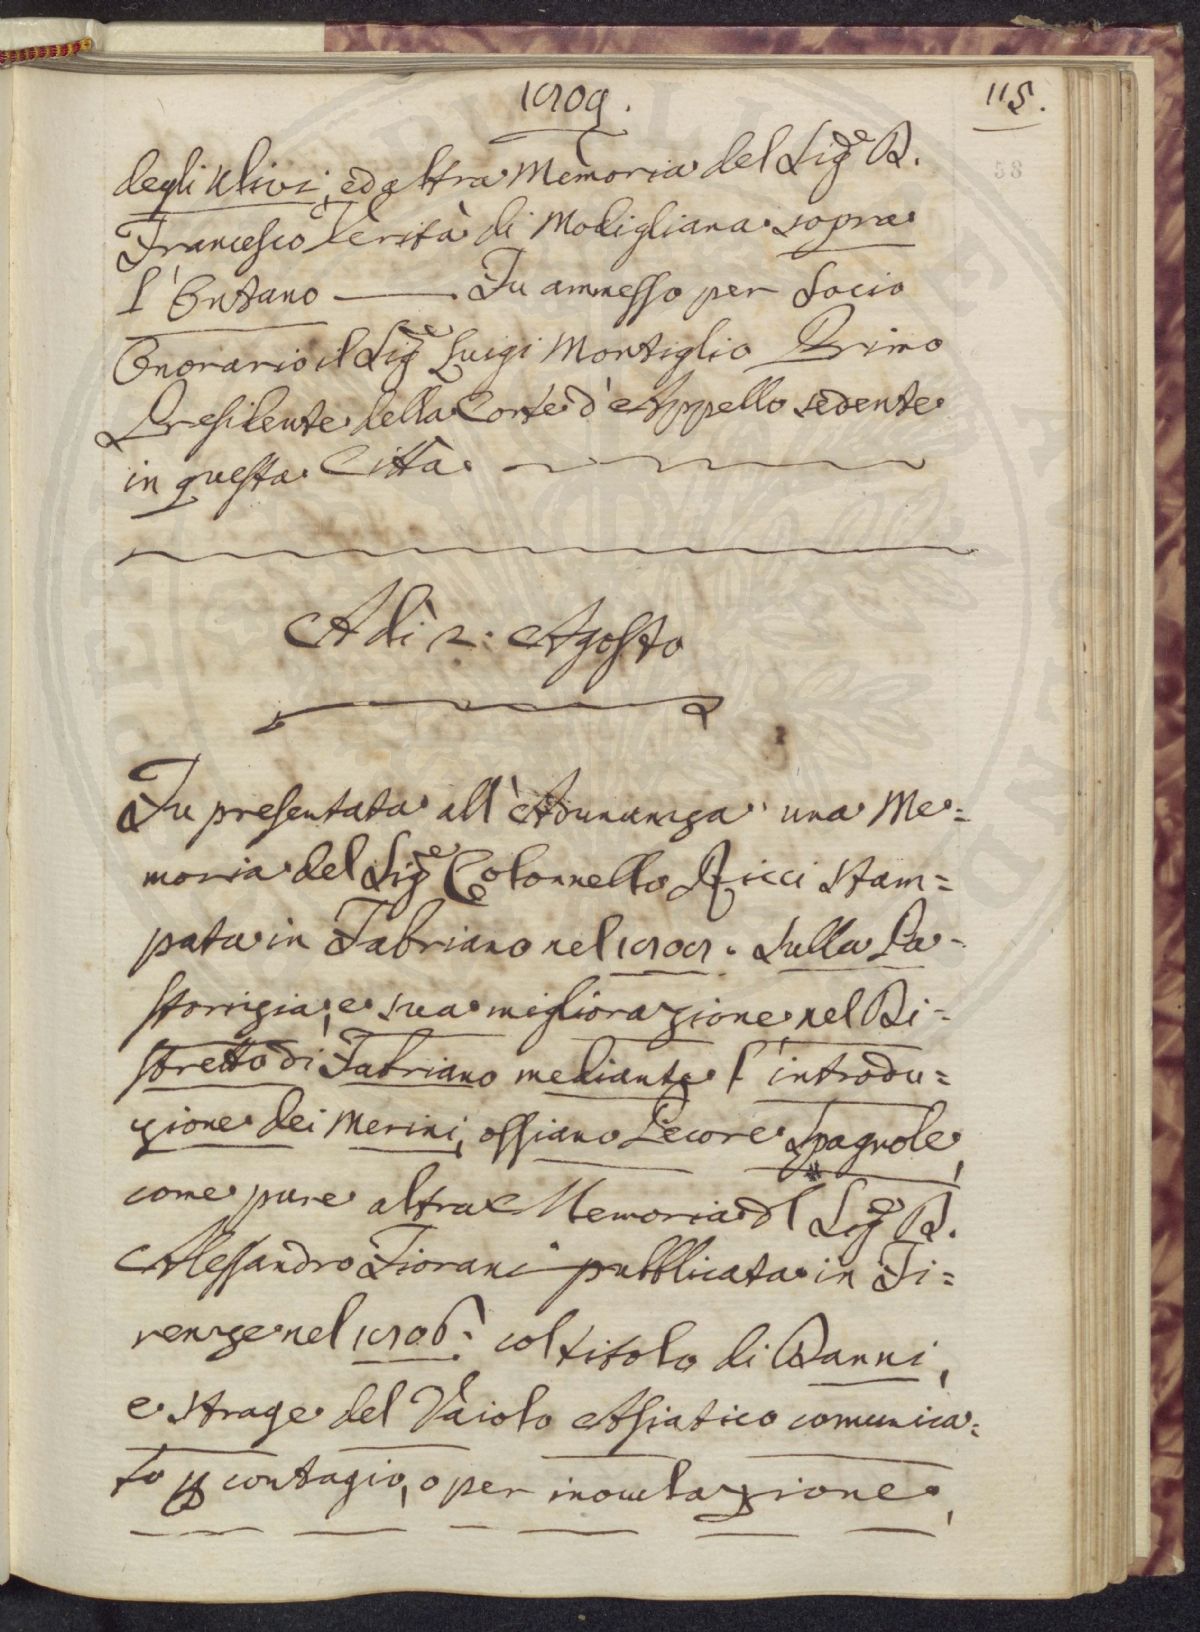 1809.
115.
58
degli Ulivi, ed altra Memoria del Sig.e D.
Francesco Verità di Modigliana sopra
l'Ontano ——— Fu ammesso per Socio
Onorario il Sig.e Luigi Montiglio Primo
Presidente della Corte d'Appello sedente
in questa Città.
A dì 2: Agosto
Fu presentata all'Adunanza una Me=
moria del Sig.e Colonnello Ricci stam=
pata in Fabriano nel 1808. Sulla Pa=
storizia, e sua migliorazione nel Di=
stretto di Fabriano mediante l'introdu=
zione dei Merini, ossiano Pecore Spagnole,
come pure altra Memoria dl Sig.e D.
Alessandro Fiorani pubblicata in Fi=
renze nel 1806. col titolo di Danni,
e strage del Vaiolo Asiatico comunica=
to p contagio, o per inoculazione,